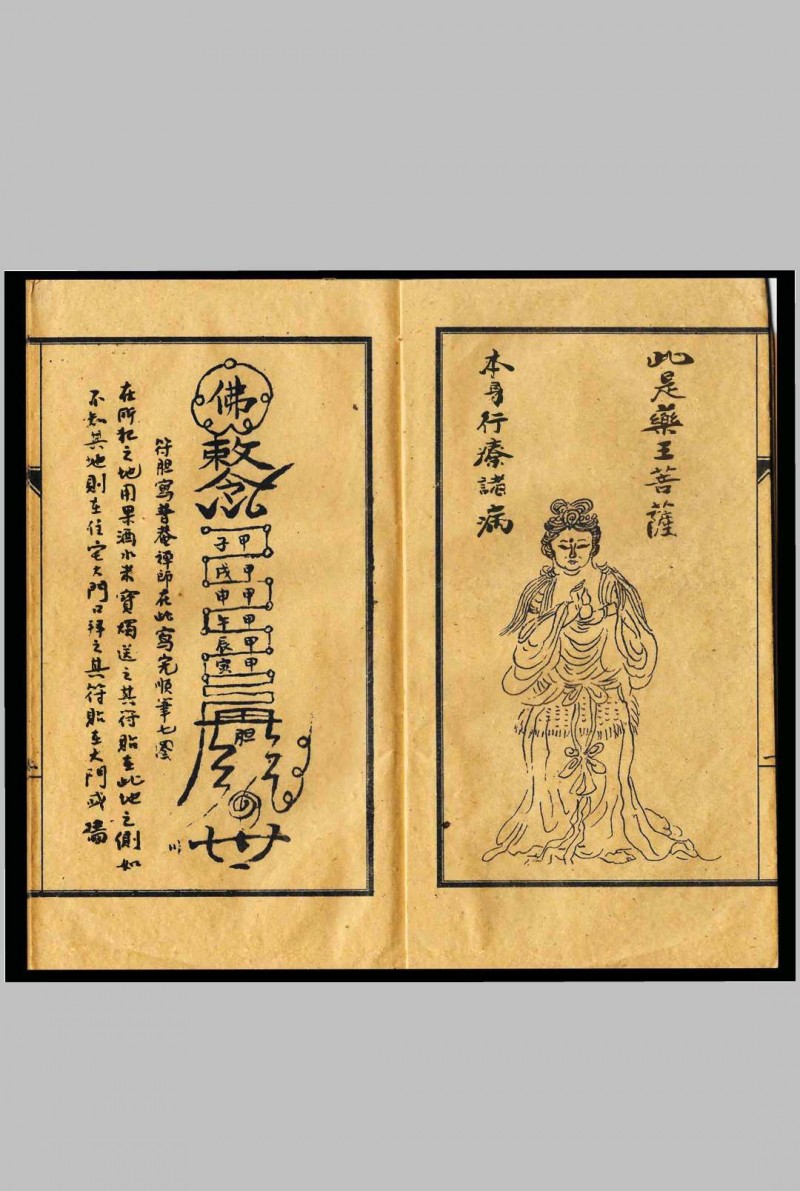 此是藥王菩薩
本身行療諸病
佛
敕
甲子
甲戌
甲申
甲午
甲辰
甲寅
胆
符胆寫普菴禪師在此寫完順筆七圈
在所犯之地用果酒小米寶燭送之其符貼在此地之側如
不知其地則在住宅大門口拜之其符貼在大門或墻